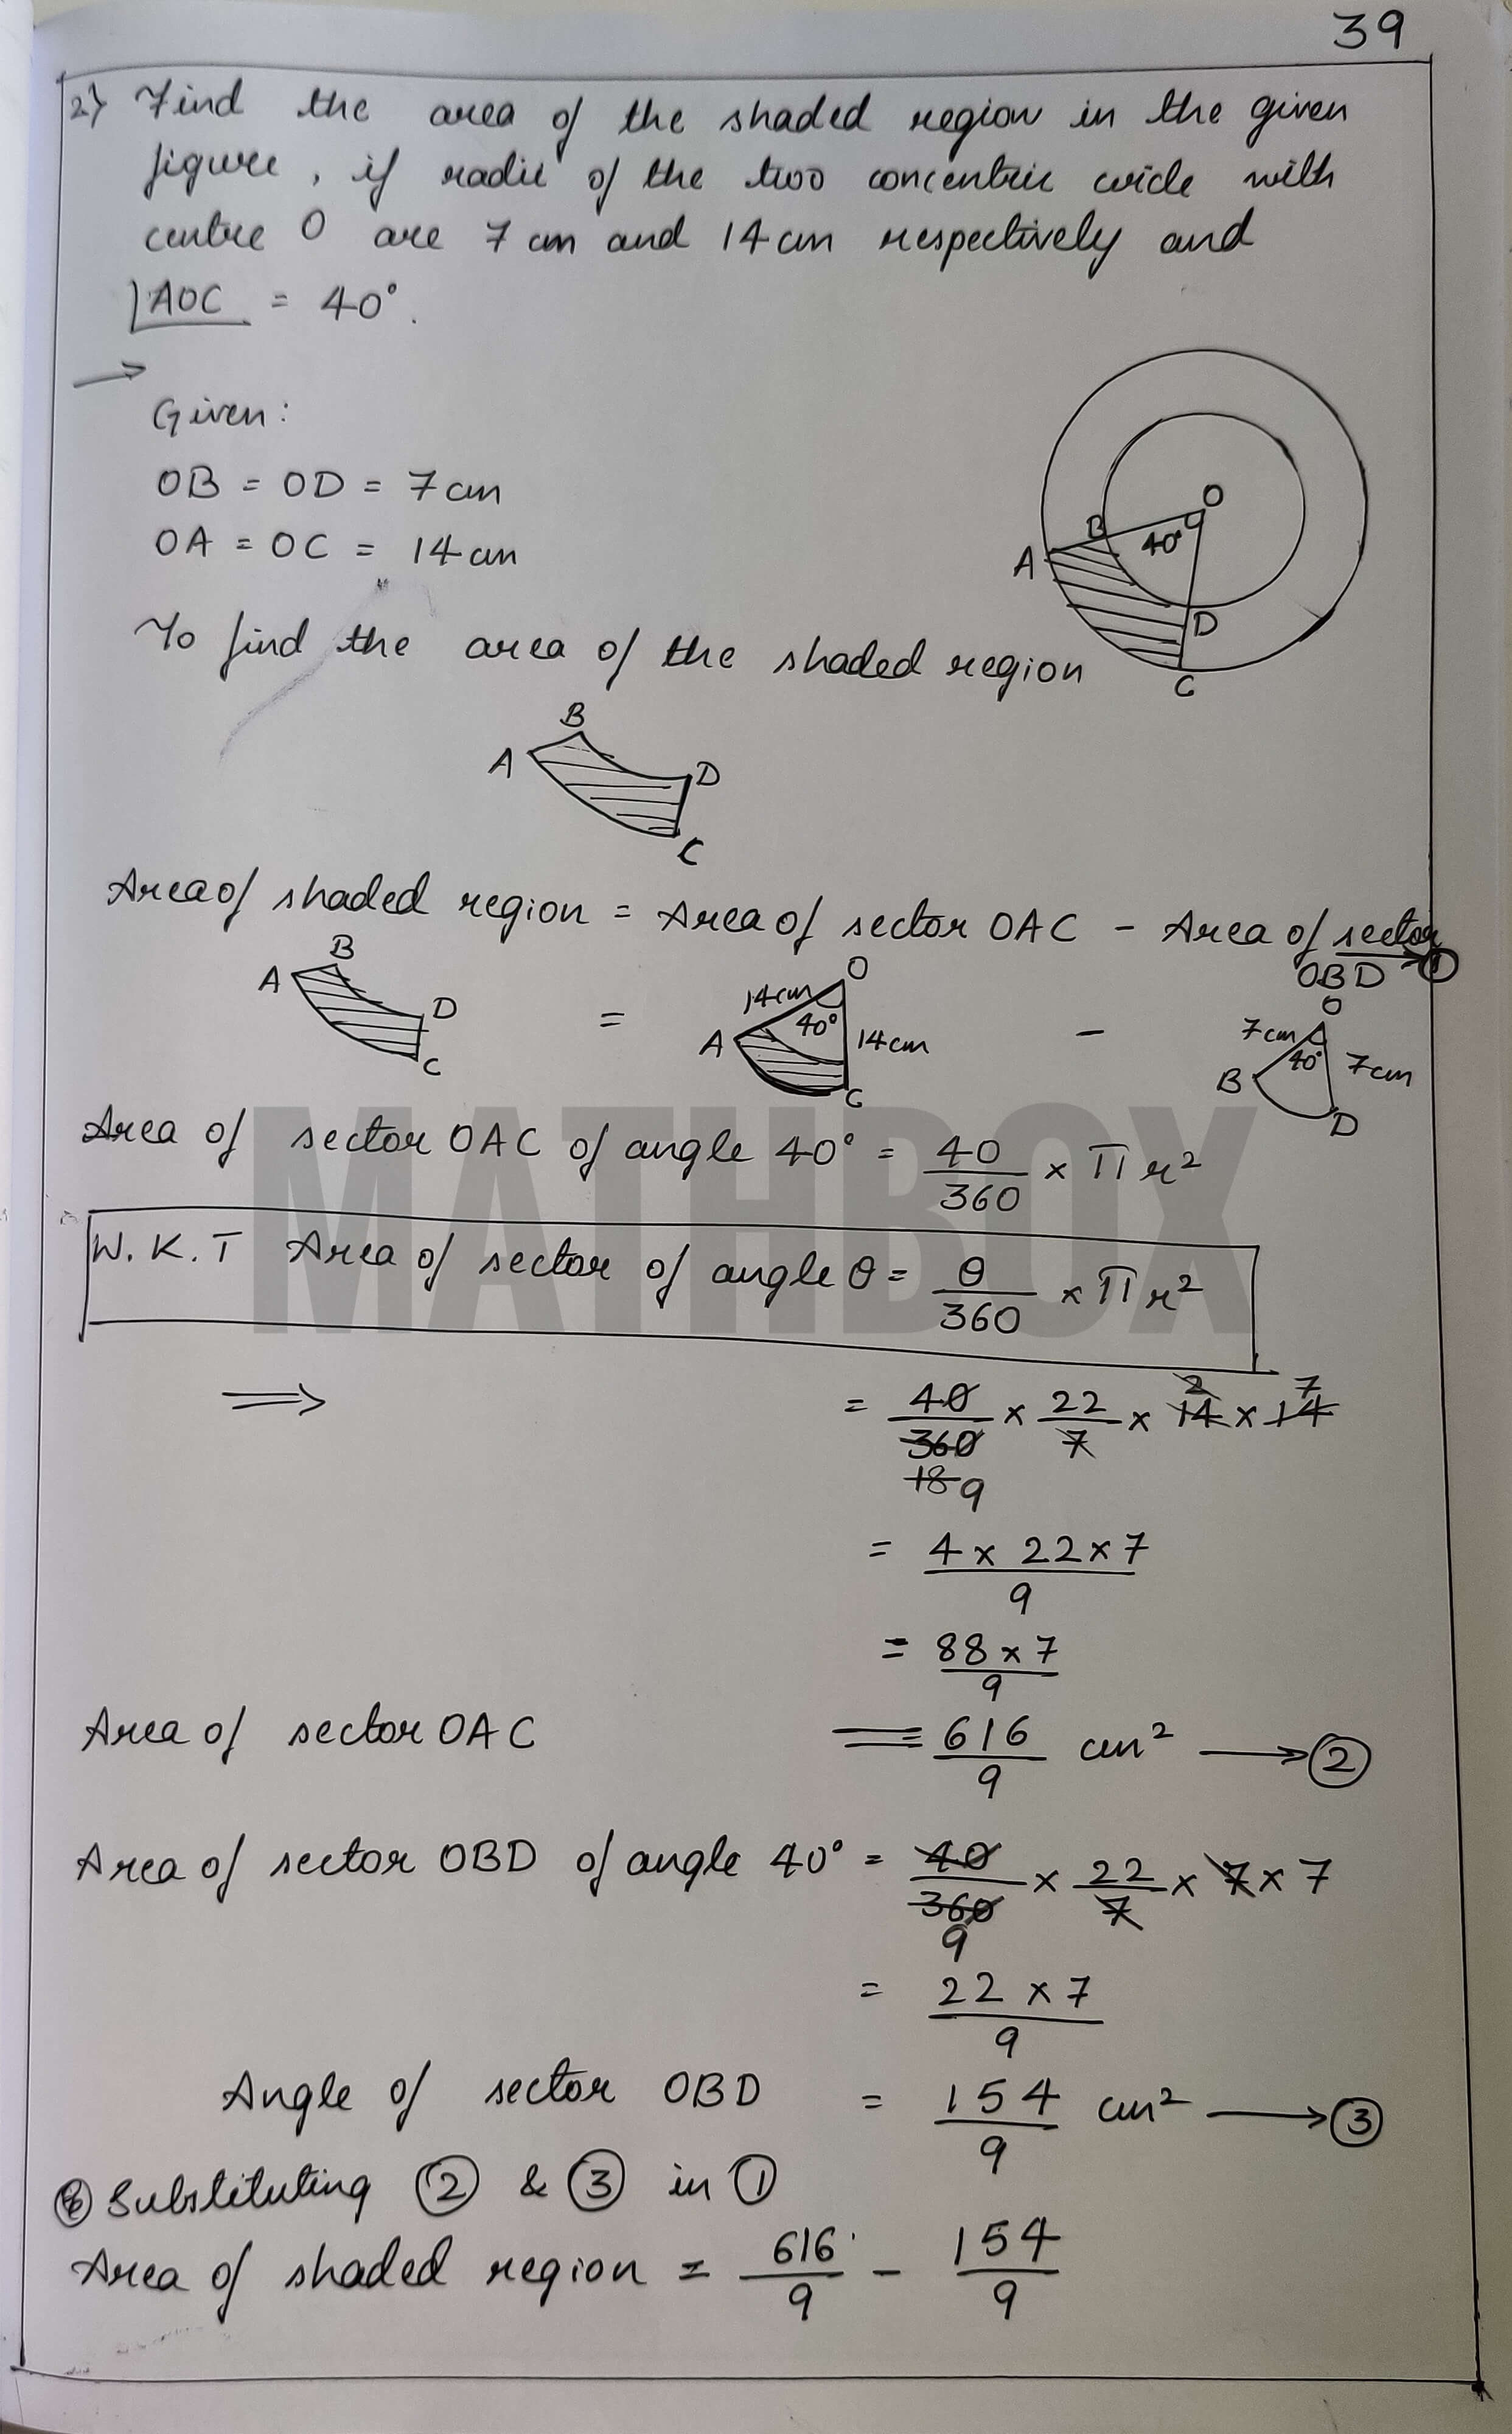 39
2) Find the area of the shaded region in the given
figure, if radii of the two concentric circle with
centre O are 7 cm and 14 cm respectively and
∠AOC = 40°.
→
Given:
OB = OD = 7 cm
OA = OC = 14 cm
O
B
40°
A
D
C
To find the area of the shaded region
B
A
D
C
Area of shaded region = Area of sector OAC - Area of sector
OBD → ①
B
A
D
C
=
O
14cm
40°
A
14cm
C
-
O
7cm
40°
7cm
B
D
MATHBOX
Area of sector OAC of angle 40° = 40/360 × πr²
W.K.T Area of sector of angle θ = θ/360 × πr²
⇒ = 40/360 × 22/7 × 14 × 14
2 7
18 9
= 4 × 22 × 7 / 9
= 88 × 7 / 9
Area of sector OAC = 616/9 cm² → ②
Area of sector OBD of angle 40° = 40/360 × 22/7 × 7 × 7
9
= 22 × 7 / 9
Angle of sector OBD = 154/9 cm² → ③
Substituting ② & ③ in ①
Area of shaded region = 616/9 - 154/9